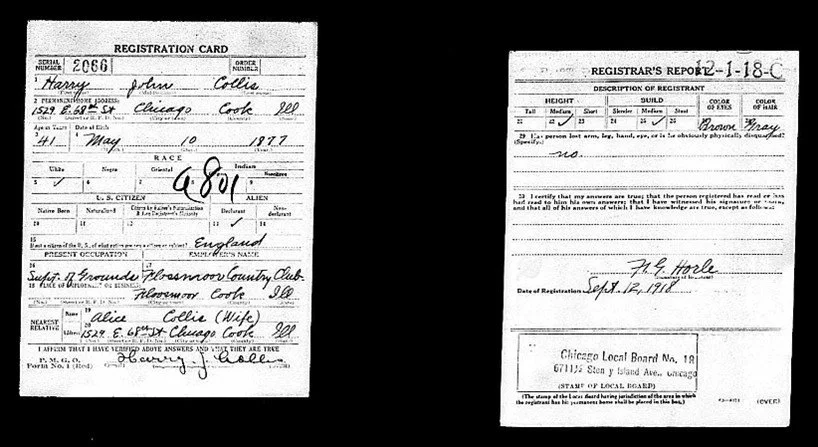 REGISTRATION CARD
SERIAL NUMBER 2066 ORDER NUMBER
1 Harry John Collis
2 PERMANENT HOME ADDRESS:
1529 E. 68th St Chicago Cook Ill
Age in Years Date of Birth
3 41 4 May 10 1877
RACE
White Negro Oriental Indian
5 ✓ 9
A801
U. S. CITIZEN ALIEN
Native Born Naturalized Citizen by Father's Naturalization Declarant Non-declarant
10 11 12 13 ✓ 14
15 England
PRESENT OCCUPATION EMPLOYER'S NAME
16 17
Supt. of Grounds Flossmoor Country Club
18 PLACE OF EMPLOYMENT OR BUSINESS:
Flossmoor Cook Ill
NEAREST RELATIVE Name 19 Alice Collis (Wife)
Address 20 1529 E. 68th St Chicago Cook Ill
I AFFIRM THAT I HAVE VERIFIED ABOVE ANSWERS AND THAT THEY ARE TRUE
P. M. G. O.
Form No. 1 (Red) Harry J. Collis
REGISTRAR'S REPORT 12-1-18-C
DESCRIPTION OF REGISTRANT
HEIGHT BUILD COLOR OF EYES COLOR OF HAIR
Tall Medium Short Slender Medium Stout
21 22 ✓ 23 24 25 ✓ 26 Brown Gray
29 Has person lost arm, leg, hand, eye, or is he obviously physically disqualified?
(Specify.)
no.
30 I certify that my answers are true; that the person registered has read or has
had read to him his own answers; that I have witnessed his signature or mark,
and that all of his answers of which I have knowledge are true, except as follows:
Date of Registration Sept. 12, 1918
Chicago Local Board No. 18
Island Ave., Chicago
(STAMP OF LOCAL BOARD)
(The stamp of the Local Board having jurisdiction of the area in which
the registrant has his permanent home shall be placed in this box.)
(OVER)